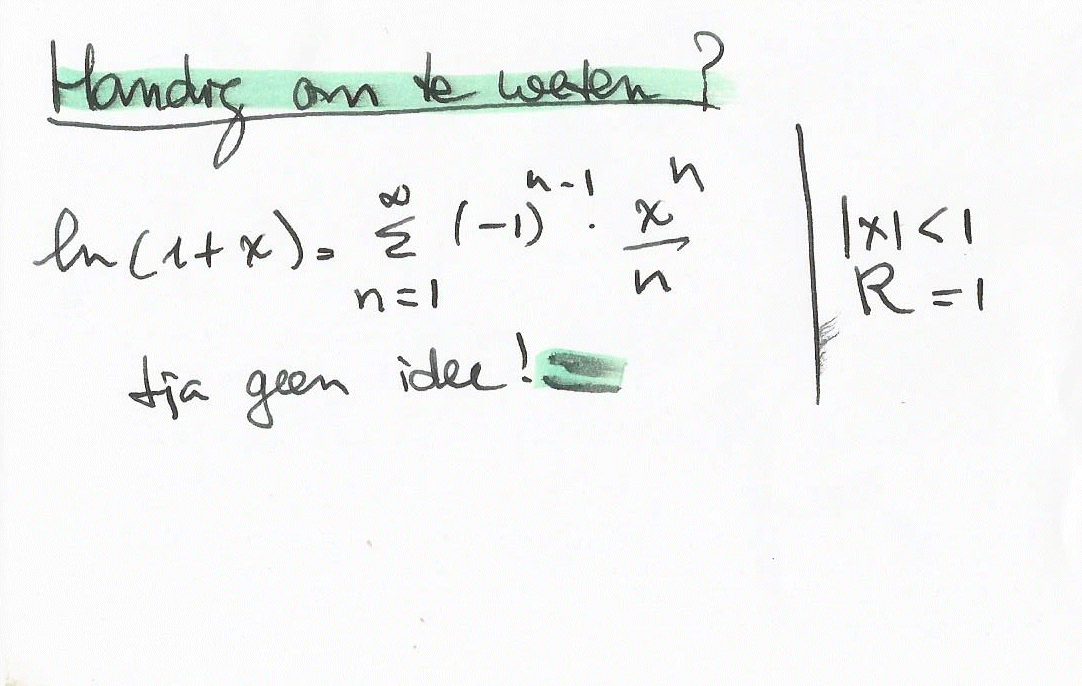 Handig om te weten?
ln(1+x) = ∞ Σ n=1 (-1)^{n-1} · x^n / n
|x| < 1
R = 1
tja geen idee!